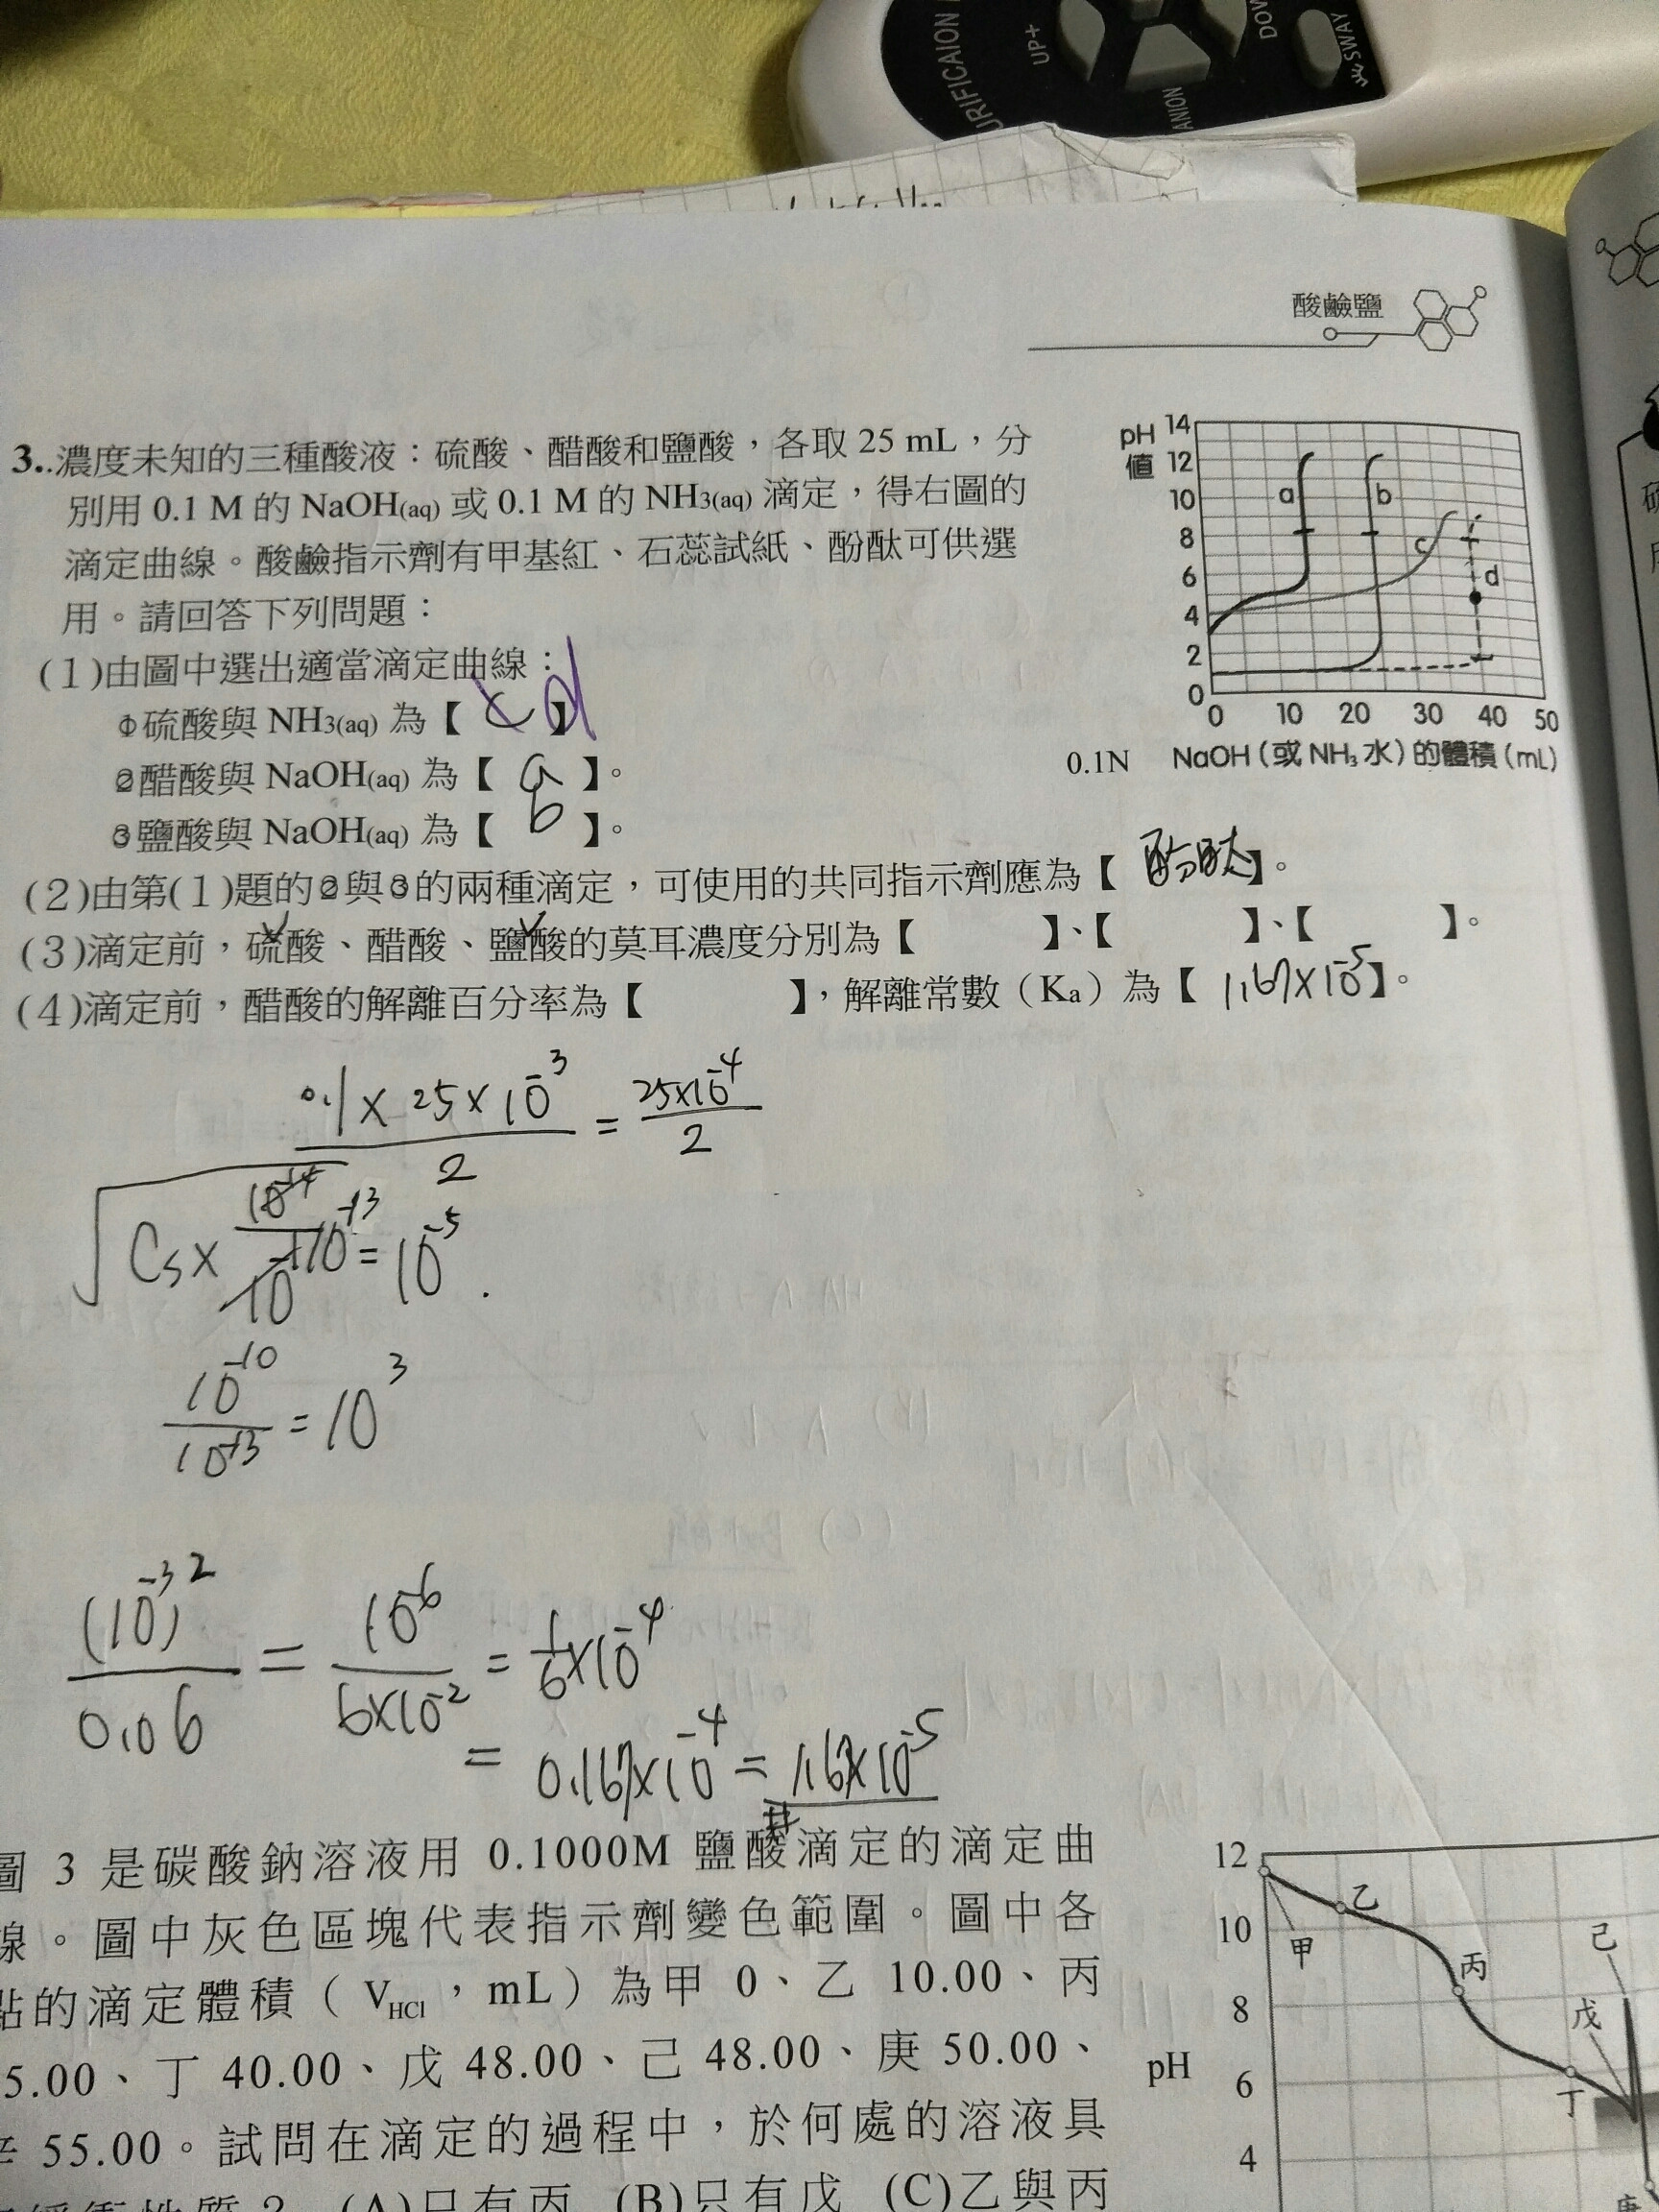 URIFICAION
UP+
ANION
DOW
SWAY
酸鹼鹽
3..濃度未知的三種酸液：硫酸、醋酸和鹽酸，各取 25 mL，分
別用 0.1 M 的 NaOH(aq) 或 0.1 M 的 NH3(aq) 滴定，得右圖的
滴定曲線。酸鹼指示劑有甲基紅、石蕊試紙、酚酞可供選
用。請回答下列問題：
(1)由圖中選出適當滴定曲線：
①硫酸與 NH3(aq) 為【 c d 】
②醋酸與 NaOH(aq) 為【 a 】。
③鹽酸與 NaOH(aq) 為【 b 】。
pH
值
14
12
10
8
6
4
2
0
a
b
c
d
0 10 20 30 40 50
0.1N NaOH（或 NH3 水）的體積（mL）
(2)由第(1)題的②與③的兩種滴定，可使用的共同指示劑應為【 酚酞】。
(3)滴定前，硫酸、醋酸、鹽酸的莫耳濃度分別為【 】、【 】、【 】。
(4)滴定前，醋酸的解離百分率為【 】，解離常數（Ka）為【 1.67×10-5】。
0.1 × 25 × 10-3 / 2 = 25×10-4 / 2
√Cs× 10-13 = 10-5.
10-10 / 10-13 = 10 3
(10-3)2 / 0.06 = 10-6 / 6×10-2 = 1/6×10-4
= 0.167×10-4 = 1.67×10-5 #
圖 3 是碳酸鈉溶液用 0.1000M 鹽酸滴定的滴定曲
線。圖中灰色區塊代表指示劑變色範圍。圖中各
點的滴定體積（VHCl，mL）為甲 0、乙 10.00、丙
5.00、丁 40.00、戊 48.00、己 48.00、庚 50.00、
辛 55.00。試問在滴定的過程中，於何處的溶液具
緩衝性質？ (A)只有丙 (B)只有戊 (C)乙與丙
12
10
8
pH 6
4
甲
乙
丙
丁
戊
己
庚